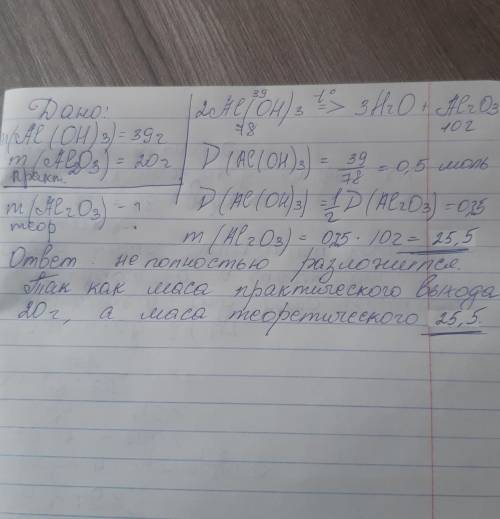 Дано:
m(Al(OH)3) = 39г
m(Al2O3) = 20г
практ.
m(Al2O3) - ?
теор
39
2Al(OH)3 t°=> 3H2O + Al2O3
78 102
D(Al(OH)3) = 39/78 = 0,5 моль
D(Al(OH)3) = 1/2 D(Al2O3) = 0,25
m(Al2O3) = 0,25 · 102 = 25,5
Ответ: не полностью разложится.
Так как маса практического выхода
20г, а маса теоретического 25,5.